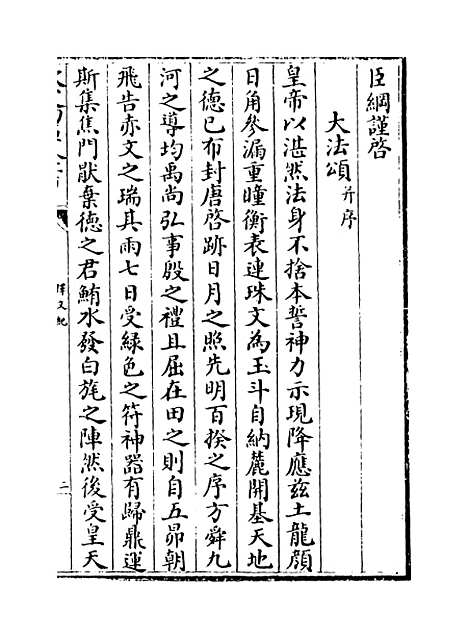 臣綱謹啓
大法頌并序
皇帝以湛然法身不捨本誓神力示現降應兹土龍顔
日角參漏重瞳衡表連珠文為玉斗自納麓開基天地
之德已布封唐啓跡日月之照先明百揆之序方舜九
河之導均禹尚弘事殷之禮且屈在田之則自五昴朝
飛告赤文之瑞其雨七日受緑色之符神器有歸鼎運
斯集焦門猒棄德之君鮪水發白旄之陣然後受皇天
釋文紀
二